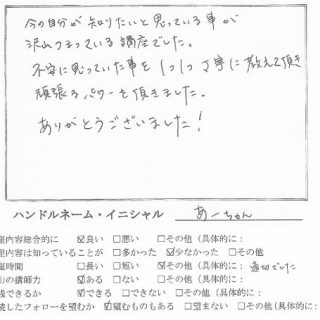 今の自分が知りたいと思っている事が
沢山つまっている講座でした。
不安に思っていた事を1つ1つ丁寧に教えて頂き
頑張るパワーを頂きました。
ありがとうございました！
ハンドルネーム・イニシャル あーちゃん
座内容総合的に ☑良い □悪い □その他（具体的に：
座内容は知っていることが □多かった ☑少なかった □その他
座時間 □長い □短い ☑その他（具体的に：適切でした
山の講師力 ☑ある □ない □その他（具体的に：
践できるか ☑できる □できない □その他（具体的に：
続したフォローを望むか ☑望むものもある □望まない □その他（具体的に：